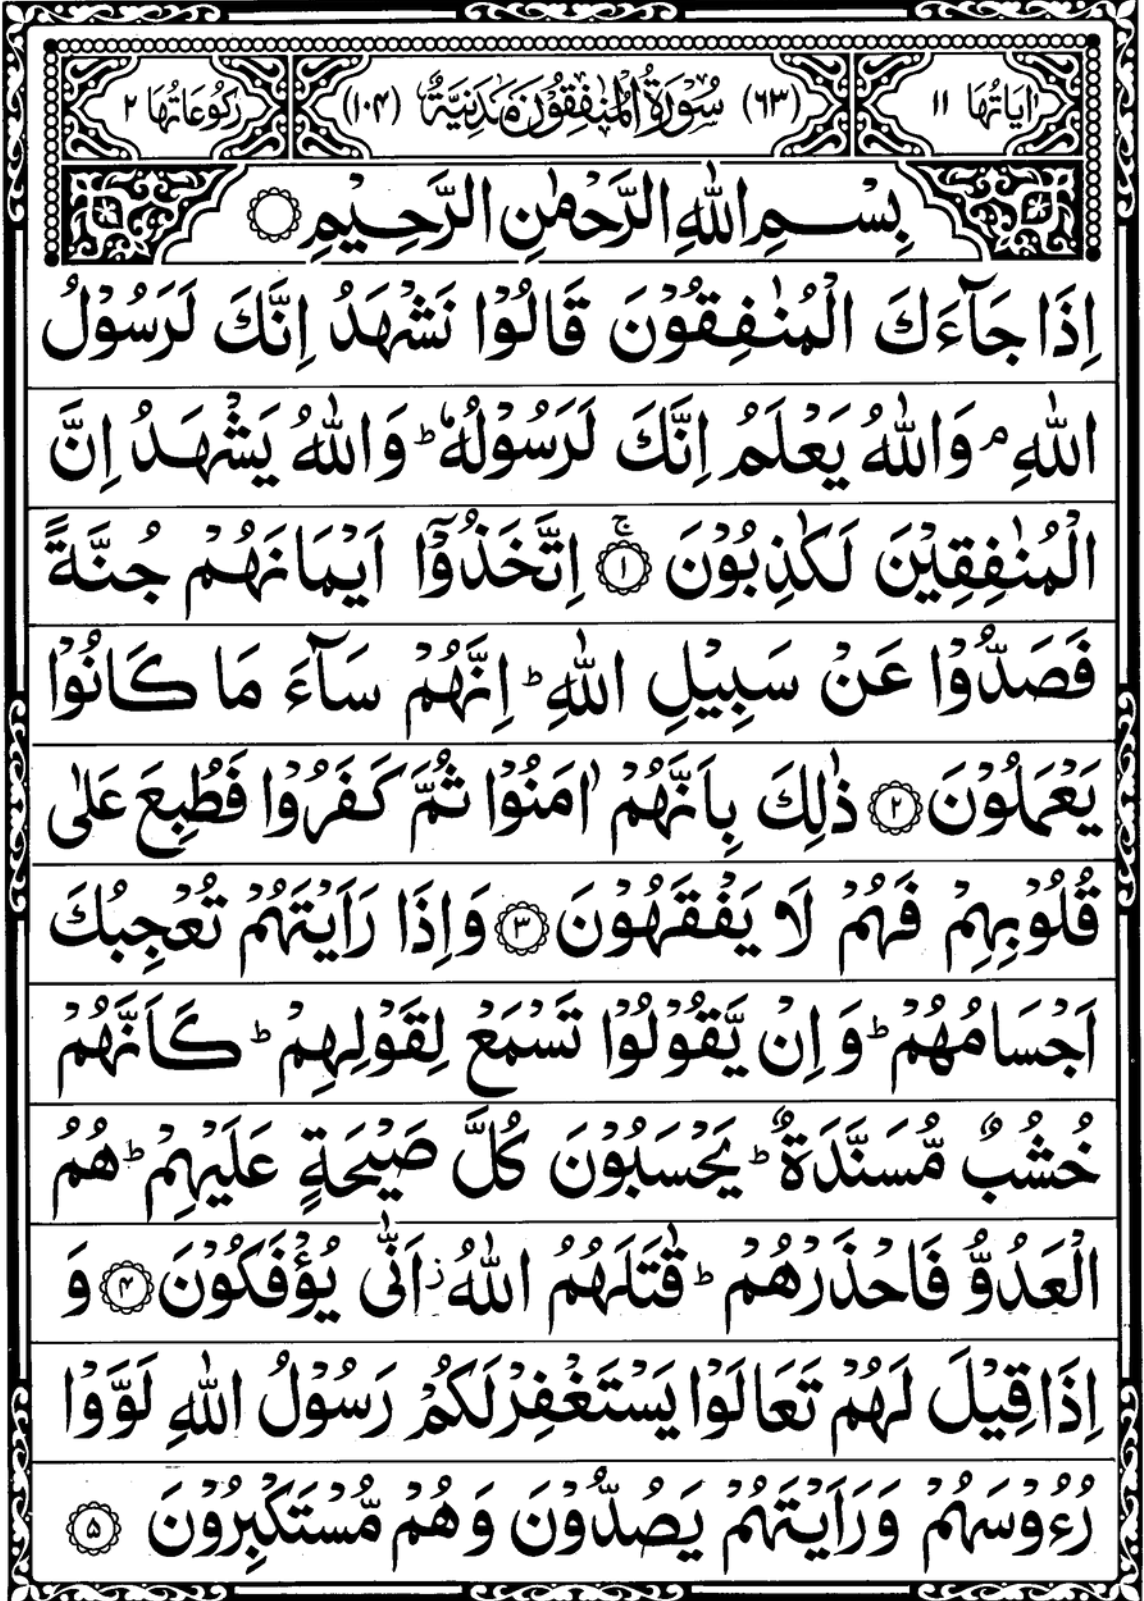 اٰيَاتُهَا ١١ (٦٣) سُوْرَةُ الْمُنٰفِقُوْنَ مَدَنِيَّةٌ (١٠٤) رُكُوْعَاتُهَا ٢
بِسْمِ اللّٰهِ الرَّحْمٰنِ الرَّحِيْمِ
اِذَا جَآءَكَ الْمُنٰفِقُوْنَ قَالُوْا نَشْهَدُ اِنَّكَ لَرَسُوْلُ
اللّٰهِ ۘ وَاللّٰهُ يَعْلَمُ اِنَّكَ لَرَسُوْلُهٗ ؕ وَاللّٰهُ يَشْهَدُ اِنَّ
الْمُنٰفِقِيْنَ لَكٰذِبُوْنَ ۚ ﴿١﴾ اِتَّخَذُوْۤا اَيْمَانَهُمْ جُنَّةً
فَصَدُّوْا عَنْ سَبِيْلِ اللّٰهِ ؕ اِنَّهُمْ سَآءَ مَا كَانُوْا
يَعْمَلُوْنَ ﴿٢﴾ ذٰلِكَ بِاَنَّهُمْ اٰمَنُوْا ثُمَّ كَفَرُوْا فَطُبِعَ عَلٰى
قُلُوْبِهِمْ فَهُمْ لَا يَفْقَهُوْنَ ﴿٣﴾ وَاِذَا رَاَيْتَهُمْ تُعْجِبُكَ
اَجْسَامُهُمْ ؕ وَ اِنْ يَّقُوْلُوْا تَسْمَعْ لِقَوْلِهِمْ ؕ كَاَنَّهُمْ
خُشُبٌ مُّسَنَّدَةٌ ؕ يَحْسَبُوْنَ كُلَّ صَيْحَةٍ عَلَيْهِمْ ؕ هُمُ
الْعَدُوُّ فَاحْذَرْهُمْ ؕ قٰتَلَهُمُ اللّٰهُ ؗ اَنّٰى يُؤْفَكُوْنَ ﴿٤﴾ وَ
اِذَا قِيْلَ لَهُمْ تَعَالَوْا يَسْتَغْفِرْ لَكُمْ رَسُوْلُ اللّٰهِ لَوَّوْا
رُءُوْسَهُمْ وَرَاَيْتَهُمْ يَصُدُّوْنَ وَهُمْ مُّسْتَكْبِرُوْنَ ﴿٥﴾